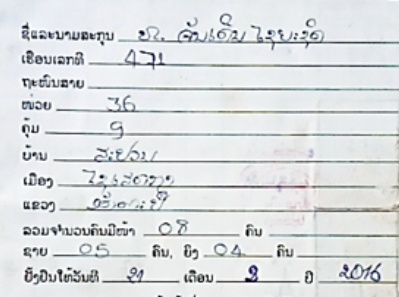 ຊື່ແລະນາມສະກຸນ ທ. ຈັນເດັນ ໄຊຍະຊິດ
ເຮືອນເລກທີ 471
ຖະໜົນສາຍ
ໜ່ວຍ 36
ຄຸ້ມ 9
ບ້ານ
ເມືອງ
ແຂວງ
ລວມຈຳນວນຄົນມີໜ້າ 08 ຄົນ
ຊາຍ 05 ຄົນ, ຍິງ 04 ຄົນ
ຢັ້ງຢືນໃຫ້ວັນທີ 21 ເດືອນ 2 ປີ 2016